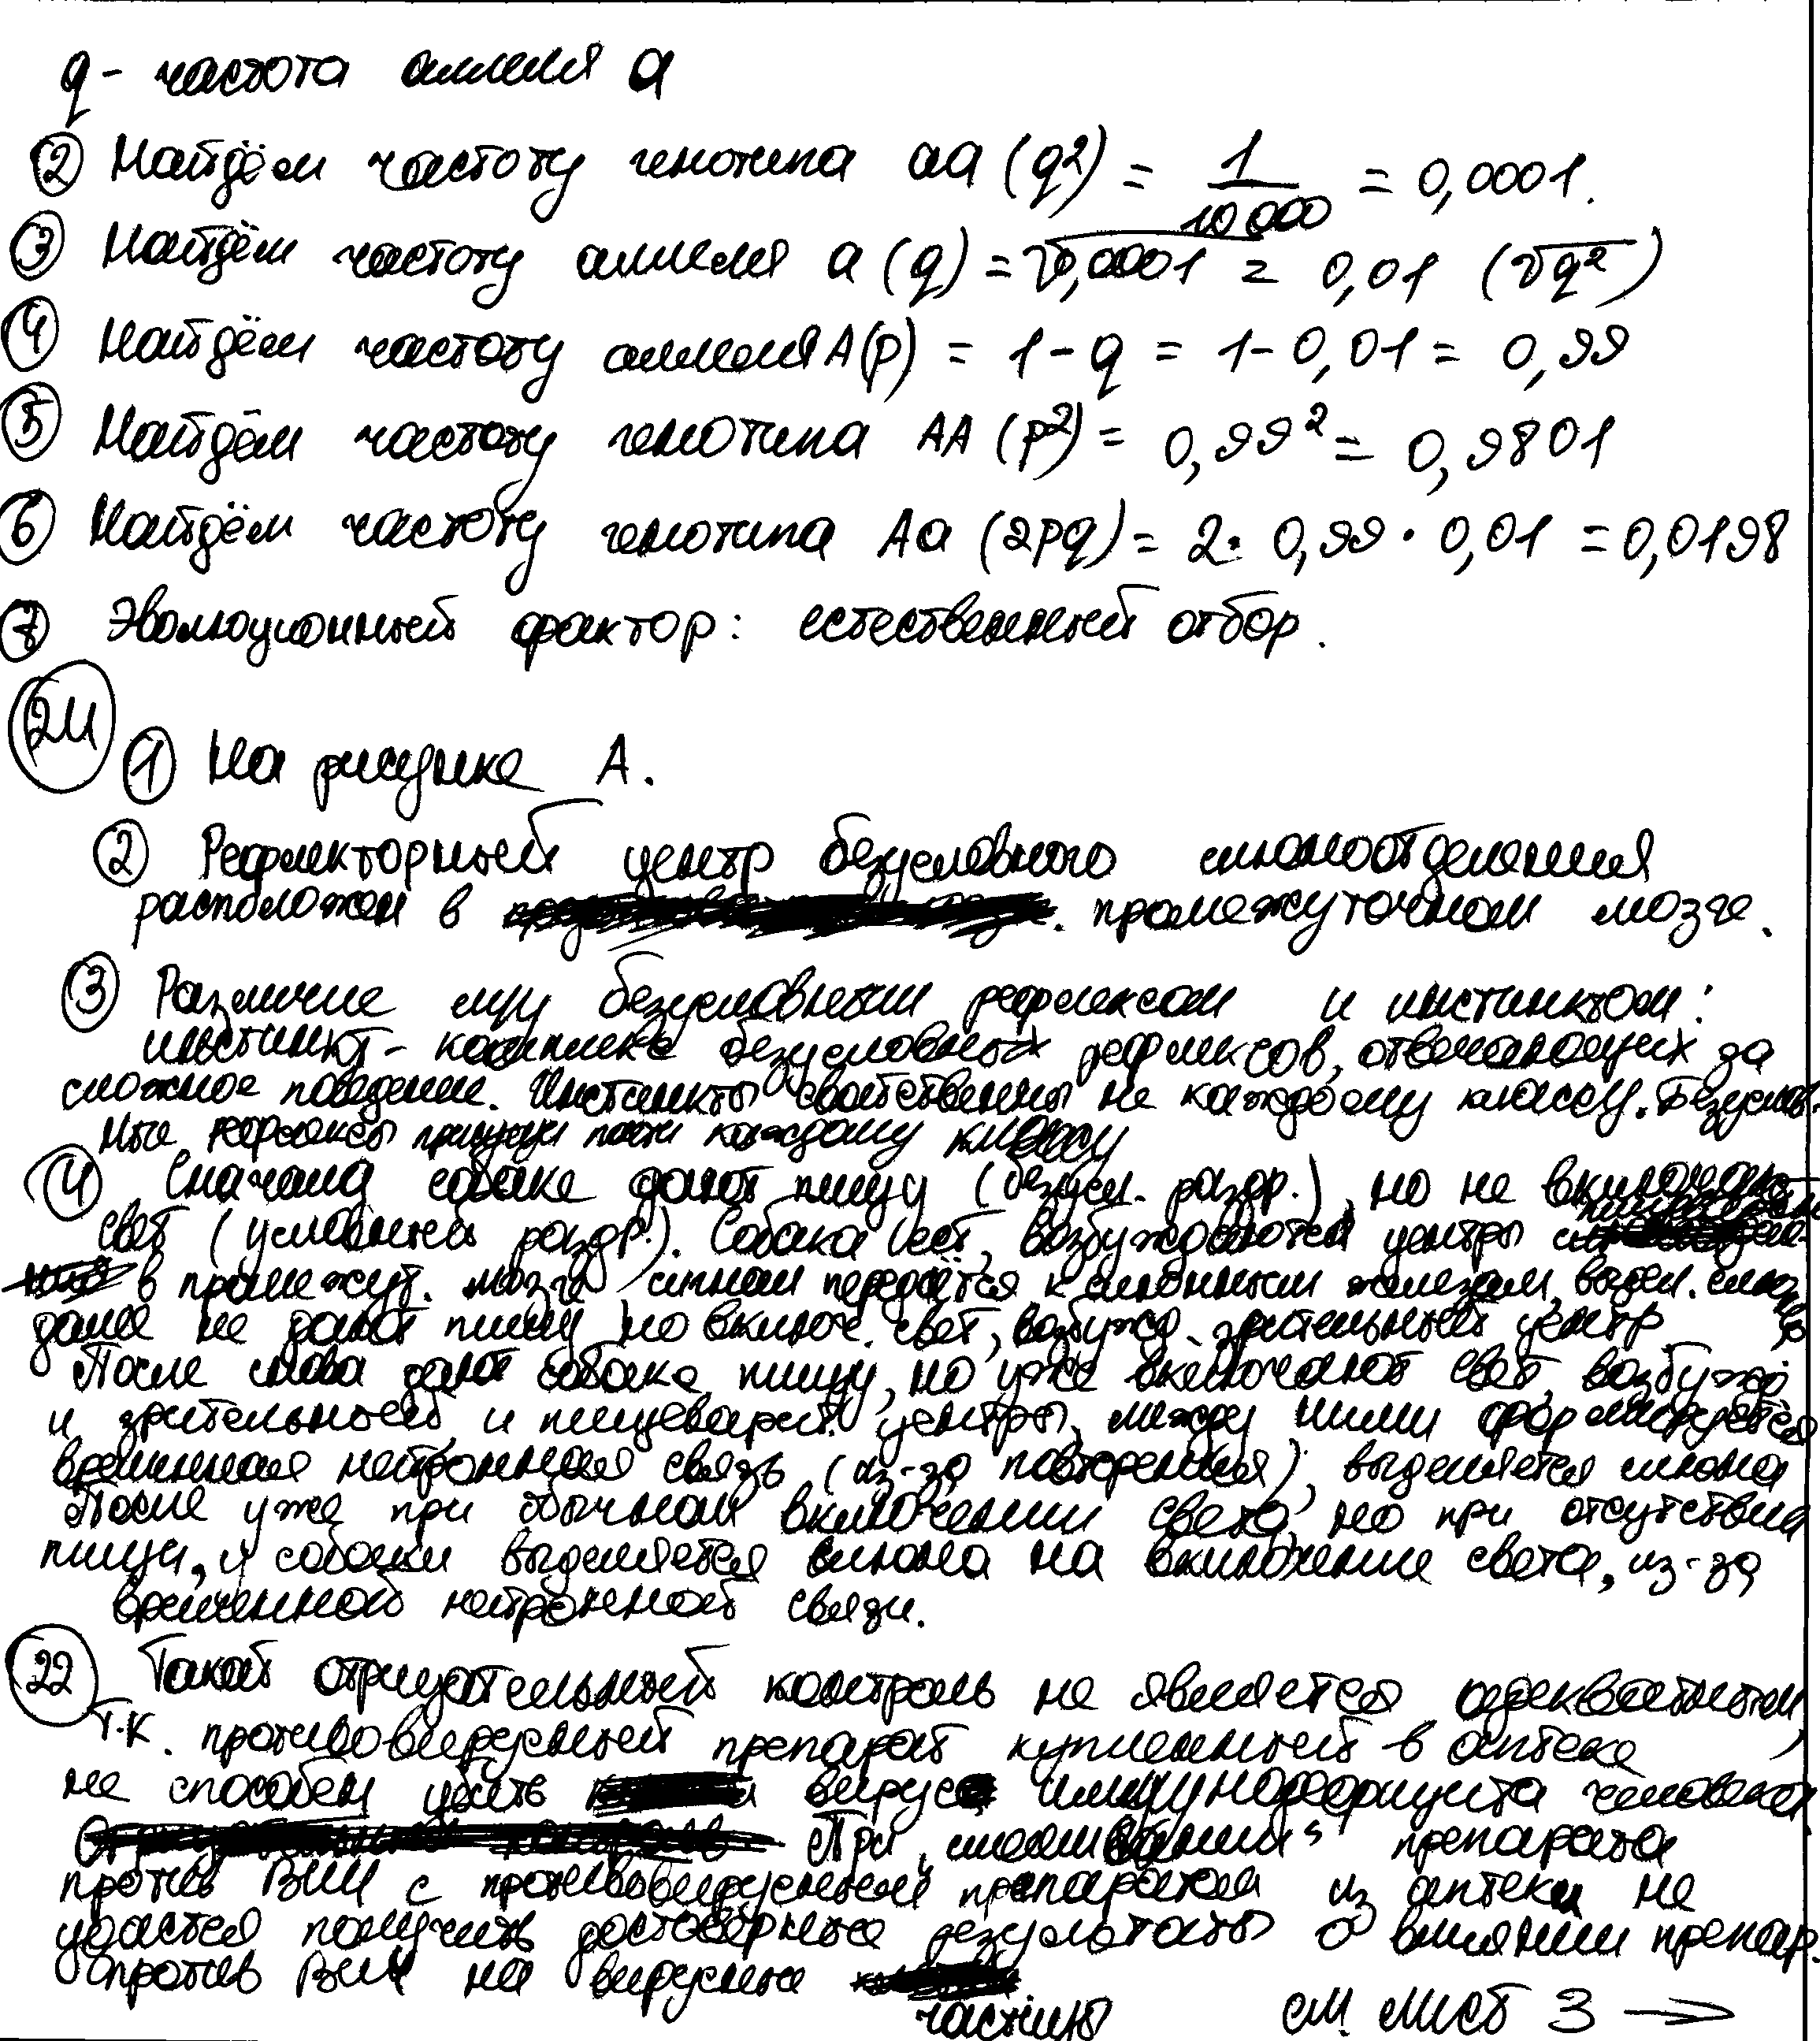 q - частота аллеля a
② Найдём частоту генотипа aa (q²) = 1/10 000 = 0,0001.
③ Найдём частоту аллеля a (q) = √0,0001 = 0,01 (√q²)
④ Найдём частоту аллеля A(p) = 1 - q = 1 - 0,01 = 0,99
⑤ Найдём частоту генотипа AA (p²) = 0,99² = 0,9801
⑥ Найдём частоту генотипа Aa (2pq) = 2 · 0,99 · 0,01 = 0,0198
⑦ Эволюционный фактор: естественный отбор.
24
① На рисунке А.
② Рефлекторный центр безусловного слюноотделения
расположен в промежуточном мозге.
③ Различие м/у безусловным рефлексом и инстинктом:
инстинкт - комплекс безусловных рефлексов, отвечающих за
сложное поведение. Инстинкты свойственны не каждому классу. Безуслов-
ные рефлексы присущи почти каждому классу
④ Сначала собаке дают пищу (безусл. раздр.), но не включают
свет (условный раздр.). Собака ест, возбуждаются центры
в промежут. мозге, сигнал передаётся к слюнным железам, выдел. слюна
далее не дают пищу, но включ. свет, возбужд. зрительный центр
После снова дают собаке пищу, но уже включают свет, возбужд
и зрительный и пищеварит. центры, между ними формируется
временная нейронная связь (из-за повторения), выделяется слюна
После уже при обычном включении света, но при отсутствии
пищи, у собаки выделяется слюна на включение света, из-за
временной нейронной связи.
22 Такой отрицательный контроль не является адекватным,
т.к. противовирусный препарат купленный в аптеке
не способен убить вирус иммунодефицита человека.
При смешивании препарата
против ВИЧ с противовирусным препаратом из аптеки не
удастся получить достоверные результаты о влиянии препар.
против ВИЧ на вирусные
частицы см. лист 3 →